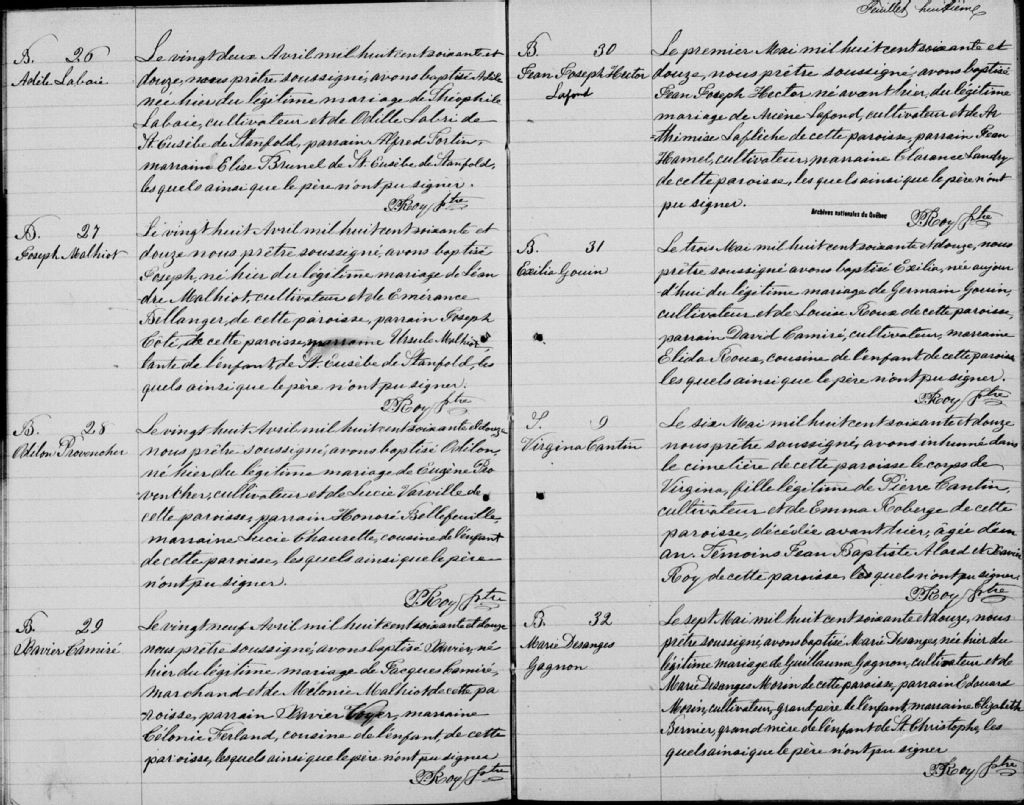 B. 26
Adèle Labaie
Le vingt deux Avril mil huit cent soixante et
douze, nous prêtre soussigné, avons baptisé Adèle
née hier du légitime mariage de Théophile
Labaie, cultivateur et de Odille Labri de
St. Eusèbe de Stanfold, parrain Alfred Fortin,
marraine Elise Brunel de St. Eusèbe de Stanfold,
les quels ainsi que le père n'ont pu signer.
P. Roy ptre
B. 27
Joseph Malhiot
Le vingt huit Avril mil huit cent soixante et
douze nous prêtre soussigné, avons baptisé
Joseph, né hier du légitime mariage de Léan
dre Malhiot, cultivateur et de Emérance
Bellanger, de cette paroisse, parrain Joseph
Côté, de cette paroisse, marraine Ursule Malhiot
tante de l'enfant, de St. Eusèbe de Stanfold, les
quels ainsi que le père n'ont pu signer.
P. Roy ptre
B. 28
Odilon Provencher
Le vingt huit Avril mil huit cent soixante et douze
nous prêtre soussigné, avons baptisé Odilon,
né hier du légitime mariage de Eugène Pro
vencher, cultivateur et de Lucie Vasville de
cette paroisse, parrain Honoré Bellefeuille,
marraine Lucie Chaurette, cousine de l'enfant
de cette paroisse, les quels ainsi que le père
n'ont pu signer.
P. Roy ptre
B. 29
Xavier Camiré
Le vingt neuf Avril mil huit cent soixante et douze
nous prêtre soussigné, avons baptisé Xavier, né
hier du légitime mariage de Jacques Camiré,
marchand et de Mélonie Malhiot de cette pa
roisse, parrain Xavier Voyer, marraine
Célonie Ferland, cousine de l'enfant, de cette
paroisse, lesquels ainsi que le père n'ont pu signer
P. Roy ptre
Feuillet huitième
B. 30
Jean Joseph Hector
Lafond
Le premier Mai mil huit cent soixante et
douze, nous prêtre soussigné, avons baptisé
Jean Joseph Hector né avant hier, du légitime
mariage de Arsène Lafond, cultivateur et de Ar
-thimise Laflèche de cette paroisse, parrain Jean
Hamel, cultivateur, marraine Clarance Landry
de cette paroisse, les quels ainsi que le père n'ont
pu signer.
Archives nationales du Québec
P. Roy ptre
B. 31
Exilia Gouin
Le trois Mai mil huit cent soixante et douze, nous
prêtre soussigné avons baptisé Exilia, née aujour
d'hui du légitime mariage de Germain Gouin,
cultivateur et de Louise Roux de cette paroisse,
parrain David Camiré, cultivateur, marraine
Elida Roux, cousine de l'enfant de cette paroisse
les quels ainsi que le père n'ont pu signer.
P. Roy ptre
S. 9
Virgina Cantin
Le six Mai mil huit cent soixante et douze
nous prêtre soussigné, avons inhumé dans
le cimetière de cette paroisse le corps de
Virgina, fille légitime de Pierre Cantin,
cultivateur et de Emma Roberge de cette
paroisse, décédée avant hier, agée d'un
an. Témoins Jean Baptiste Alard et Xavier
Roy de cette paroisse, les quels n'ont pu signer.
P. Roy ptre
B. 32
Marie Desanges
Gagnon
Le sept Mai mil huit cent soixante et douze, nous
prêtre soussigné, avons baptisé Marie Desanges, née hier du
légitime mariage de Guillaume Gagnon, cultivateur et de
Marie Desanges Morin de cette paroisse, parrain Edouard
Morin, cultivateur, grand père de l'enfant, marraine Elizabeth
Bernier, grand mère de l'enfant de St. Christophe, les
quels ainsi que le père n'ont pu signer
P. Roy ptre